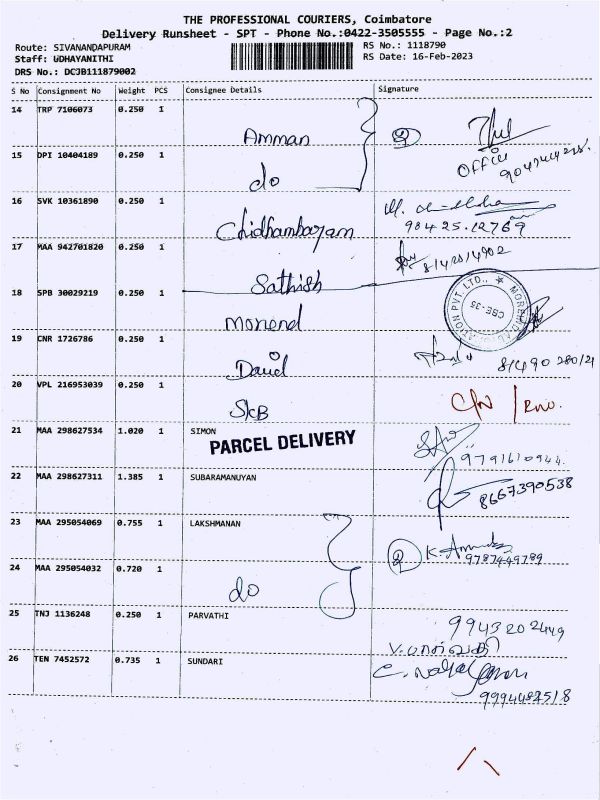 THE PROFESSIONAL COURIERS, Coimbatore
Delivery Runsheet - SPT - Phone No.:0422-3505555 - Page No.:2
Route: SIVANANDAPURAM RS No.: 1118790
Staff: UDHAYANITHI RS Date: 16-Feb-2023
DRS No.: DCJB111879002
S No Consignment No Weight PCS Consignee Details Signature
14 TRP 7106073 0.250 1 Amman
Office
15 DPI 10404189 0.250 1 do
16 SVK 10361890 0.250 1 Chidhambaram
98425.12769
17 MAA 942701820 0.250 1 Sathish
18 SPB 30029219 0.250 1 Morend
CBE-35
19 CNR 1726786 0.250 1 David
20 VPL 216953039 0.250 1 SKB
21 MAA 298627534 1.020 1 SIMON
PARCEL DELIVERY
9791610944
22 MAA 298627311 1.385 1 SUBARAMANUYAN
8667390538
23 MAA 295054069 0.755 1 LAKSHMANAN
2
9787449789
24 MAA 295054032 0.720 1 do
25 TNJ 1136248 0.250 1 PARVATHI 9943202449
V. பார்வதி
26 TEN 7452572 0.735 1 SUNDARI
9994482518